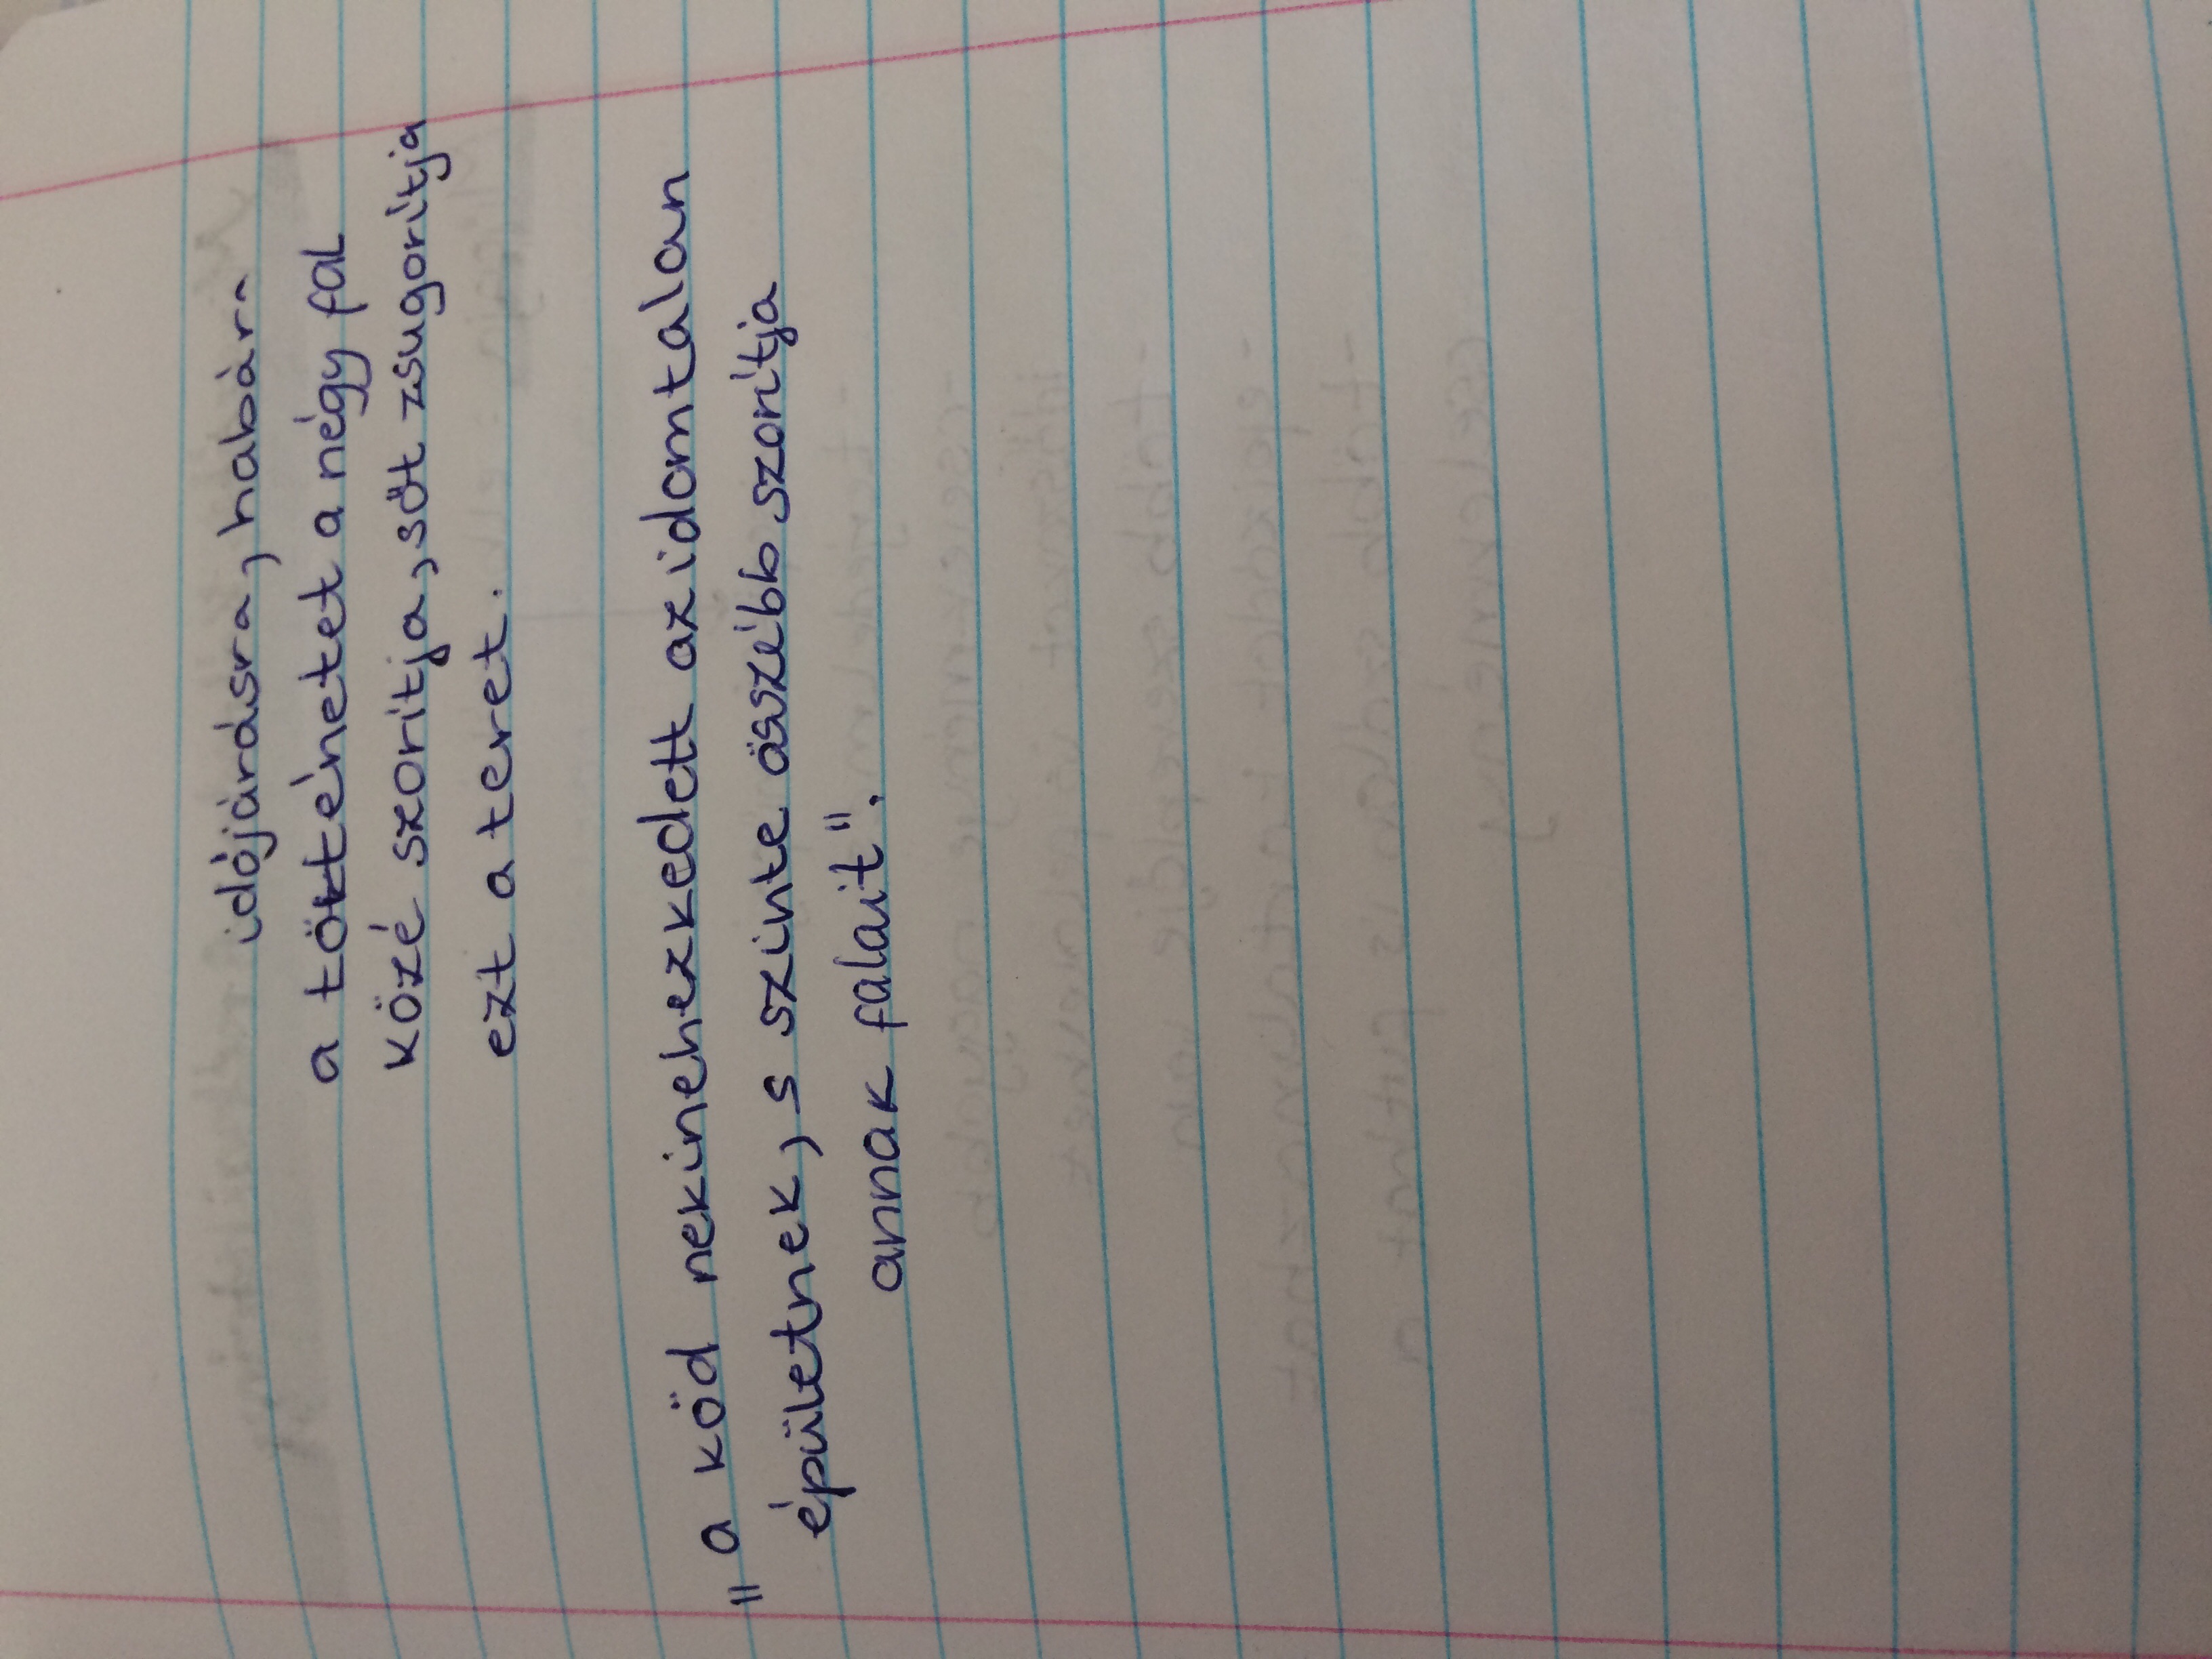 időjárásra, habár a
a történetet a négy fal
közé szorítja, sőt zsugorítja
ezt a teret.
"a köd nekinehezkedett az idomtalan
épületnek, s szinte öszébb szorítja
annak falait".